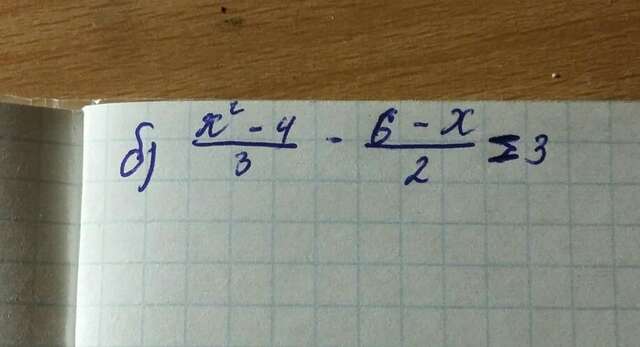 б) (x² - 4)/3 - (6 - x)/2 = 3